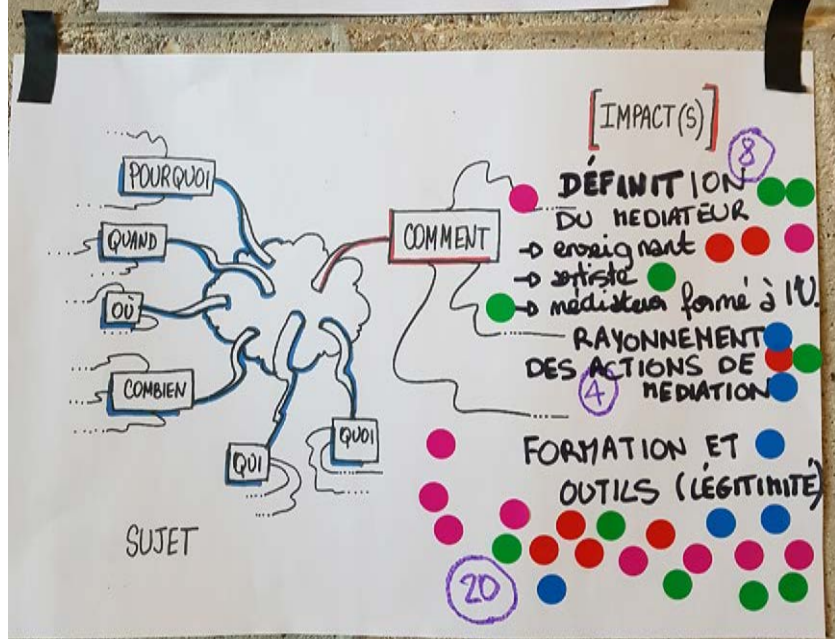 [IMPACT(S)]
POURQUOI
QUAND
OÙ
COMBIEN
QUI
QUOI
COMMENT
SUJET
8
DÉFINITION
DU MEDIATEUR
→ enseignant
→ artiste
→ médiateur formé à l'U.
RAYONNEMENT
DES ACTIONS DE
MEDIATION
4
FORMATION ET
OUTILS (LÉGITIMITÉ)
20